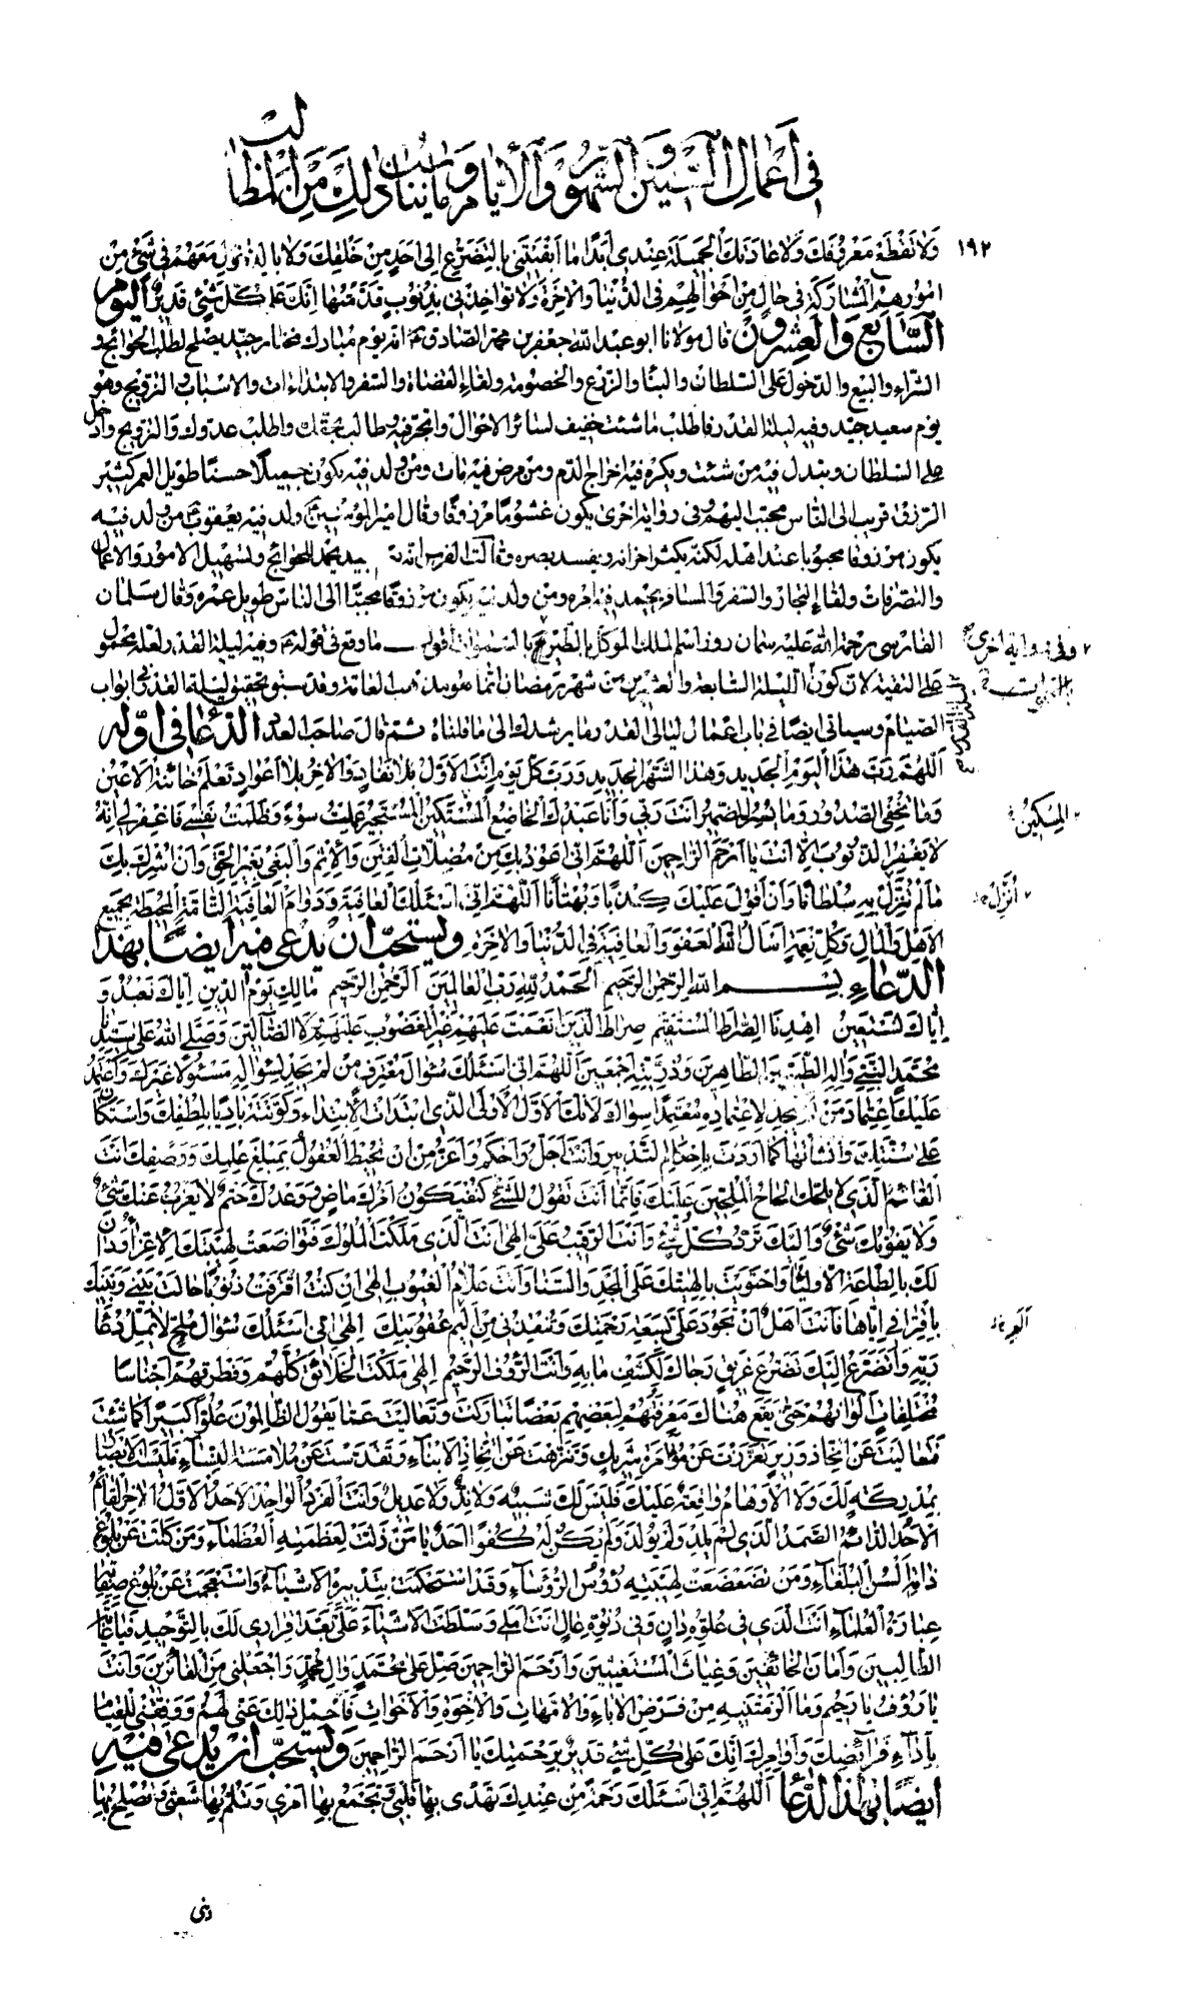 في أعمال السنين والشهور والأيام وما يناسب ذلك من المطالب
١٩٢
ولا تقطع معروفك ولا عادتك الجميلة عندي أبدا ما أبقيتني بالتضرع إلى أحد من خلقك ولا بالدخول معهم في شيء من
أمورهم المشاركة في حال من أحوالهم في الدنيا والآخرة ولا تؤاخذني بذنوب قدمتها إنك على كل شيء قدير اليوم
السابع والعشرون قال مولانا أبو عبد الله جعفر بن محمد الصادق ع أنه يوم مبارك مختار جيد يصلح لطلب الحوائج و
الشراء والبيع والدخول على السلطان والبناء والزرع والخصومة ولقاء القضاة والسفر والابتداءات والأسباب والتزويج وهو
يوم سعيد جيد وفيه ليلة القدر فاطلب ما شئت خفيف لسائر الأحوال واتجر فيه وطالب بحقك واطلب عدوك والتزويج وادخل
على السلطان ويبدل فيه من شئت ويكره فيه إخراج الدم ومن مرض فيه مات ومن ولد فيه يكون جميلا حسنا طويل العمر كثير
الرزق قريب إلى الناس محببا إليهم وفي رواية أخرى يكون غشوما مرزوقا وقال أمير المؤمنين ع ولد فيه يعقوب ع من ولد فيه
يكون مرزوقا محبوبا عند أهله لكنه يكثر أحزانه ويفسد بصره وقالت الفرس إنه جيد يحمد للحوائج ولتسهيل الأمور والأعمال
والتصرفات ولقاء التجار والسفر والمسافر يحمد فيه أمره ومن ولد فيه يكون مرزوقا محببا إلى الناس طويل عمره وقال سلمان
الفارسي رحمة الله عليه سمان روز اسم الملك الموكل بالطير ع بالسموات أقول ما وقع في قوله ع وفيه ليلة القدر لعله محمول
٢ وفي رواية أخرى
على التقية لأن كون الليلة السابعة والعشرين من شهر رمضان إنما هو مذهب العامة وقد سبق تحقيق ليلة القدر في أبواب
الصيام وسيأتي أيضا في باب أعمال ليالي القدر ما يرشدك إلى ما قلناه ثم قال صاحب العدد الدعاء في أوله
اللهم رب هذا اليوم الجديد وهذا الشهر الجديد ورب كل يوم أنت الأول بلا نفاد والآخر بلا أعواد تعلم خائنة الأعين
وما تخفي الصدور وما تسر الضمير أنت ربي وأنا عبدك الخاضع المستكين المستجير عملت سوء وظلمت نفسي فاغفر لي إنه
٢ المسكين
لا يغفر الذنوب إلا أنت يا أرحم الراحمين اللهم إني أعوذ بك من مضلات الفتن والإثم والبغي بغير الحق وأن أشرك بك
ما لم تنزل به سلطانا وأن أقول عليك كذبا وبهتانا اللهم إني أسئلك العافية ودوام العافية التامة المحيطة بجميع
٢ أنزل
الأهل والمال وكل نعمة أسأل الله العفو والعافية في الدنيا والآخرة ويستحب أن يدعى فيه أيضا بهذا
الدعاء بسم الله الرحمن الرحيم الحمد لله رب العالمين الرحمن الرحيم مالك يوم الدين إياك نعبد و
إياك نستعين اهدنا الصراط المستقيم صراط الذين أنعمت عليهم غير المغضوب عليهم ولا الضالين وصلى الله على سيدنا
محمد النبي وآله الطيبين الطاهرين وذريته أجمعين اللهم إني أسئلك سؤال معترف من لم يجد لسؤاله مسئولا غيرك وأعتمد
عليك اعتماد من لم يجد لاعتماده معتمدا سواك لأنك الأول الأولى الذي ابتدأت الابتداء وكونته باديا بلطفك واستكان
على سنتك وأنشأتها كما أردت بإحكام التدبير وأنت أجل وأحكم وأعز من أن تحيط العقول بمبلغ علمك ووصفك أنت
القائم الذي لا يلحك إلحاح الملحين عليك فإنما أنت تقول للشيء كن فيكون أمرك ماض ووعدك حتم لا يعزب عنك شيء
ولا يفوتك شيء وإليك ترد كل شيء وأنت الرقيب علي إلهي أنت الذي ملكت الملوك فتواضعت لهيبتك الأعزة ودان
لك بالطاعة الأولياء واحتويت بإلهيتك على المجد والسناء وأنت علام الغيوب إلهي إن كنت اقترفت ذنوبا حالت بيني وبينك
باقترافي إياها فأنت أهل أن تجود علي بسعة رحمتك وتنقذني من أليم عقوبتك إلهي إني أسئلك سؤال ملح لا يمل دعاء
ربه وأتضرع إليك تضرع غريق رجاك لكشف ما به وأنت الرؤوف الرحيم إلهي ملكت الخلائق كلهم وفطرتهم أجناسا
مختلفات ألوانهم حتى يقع هناك معرفتهم لبعضهم بعضا تباركت وتعاليت عما يقول الظالمون علوا كبيرا كما شئت
فتعاليت عن اتخاذ وزير وتعززت عن مؤامرة شريك وتنزهت عن اتخاذ الأبناء وتقدست عن ملامسة النساء فليست الأبصار
بمدركة لك ولا الأوهام واقعة عليك فليس لك شبيه ولا ند ولا عديل وأنت الفرد الواحد الأحد الأول الآخر القائم
الأحد الدائم الصمد الذي لم يلد ولم يولد ولم يكن له كفوا أحد يا من ذلت لعظمته العظماء ومن كلت عن بلوغ
ذاته ألسن البلغاء ومن تضعضعت لهيبته رؤوس الرؤساء وقد استحكمت بتدبيره الأشياء واستعجمت عن بلوغ صفاته
عبارة العلماء أنت الذي في علوه دان وفي دنوه عال أنت أملي وسلطت الأشياء علي بعد إقراري لك بالتوحيد فيا غاية
الطالبين وأمان الخائفين وغياث المستغيثين وأرحم الراحمين صل على محمد وآل محمد واجعلني من الفائزين وأنت
يا رؤوف يا رحيم وما ألزمتنيه من فرض الآباء والأمهات والأخوة والأخوات فاحمل ذلك عني لهم ووفقني للقيام
بأداء فرائضك وأوامرك إنك على كل شيء قدير برحمتك يا أرحم الراحمين ويستحب أن يدعى فيه
أيضا بهذا الدعاء اللهم إني أسئلك رحمة من عندك تهدي بها قلبي وتجمع بها أمري وتلم بها شعثي وتصلح بها
ديني